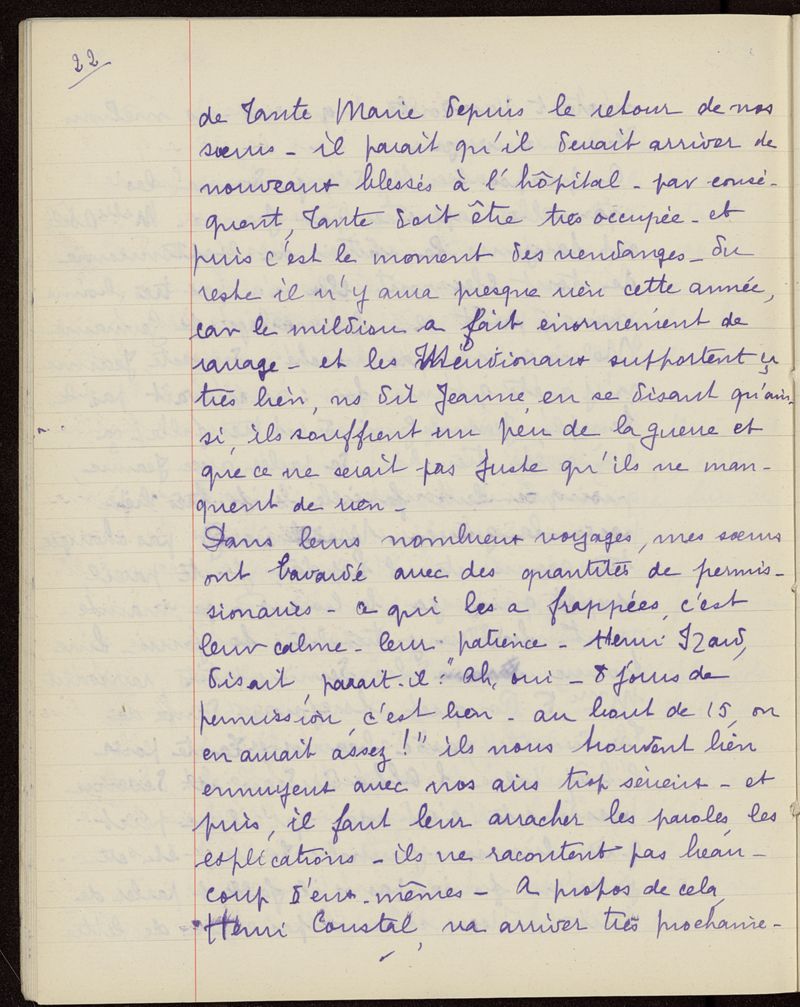 22
de Tante Marie depuis le retour de nos
sœurs - il parait qu'il devait arriver de
nouveaux blessés à l'hôpital - par consé-
quent, Tante doit être très occupée - et
puis c'est le moment des vendanges - du
reste il n'y aura presque rien cette année,
car le mildiou a fait énormément de
ravage - et les Méridionaux supportent ça
très bien, ns dit Jeanne, en se disant qu'ain-
si, ils souffrent un peu de la guerre et
que ce ne serait pas juste qu'ils ne man-
quent de rien -
Dans leurs nombreux voyages, mes sœurs
ont bavardé avec des quantités de permis-
sionaires - ce qui les a frappées, c'est
leur calme - leur patience - Henri Izard,
disait parait-il : "Ah, oui - 8 jours de
permission, c'est bien - au bout de 15, on
en aurait assez !" ils nous trouvent bien
ennuyent avec nos airs trop sérieux - et
puis, il faut leur arracher les paroles, les
esplications - ils ne racontent pas beau-
coup d'eux-mêmes - A propos de cela,
Henri Coustal, va arriver très prochaine-